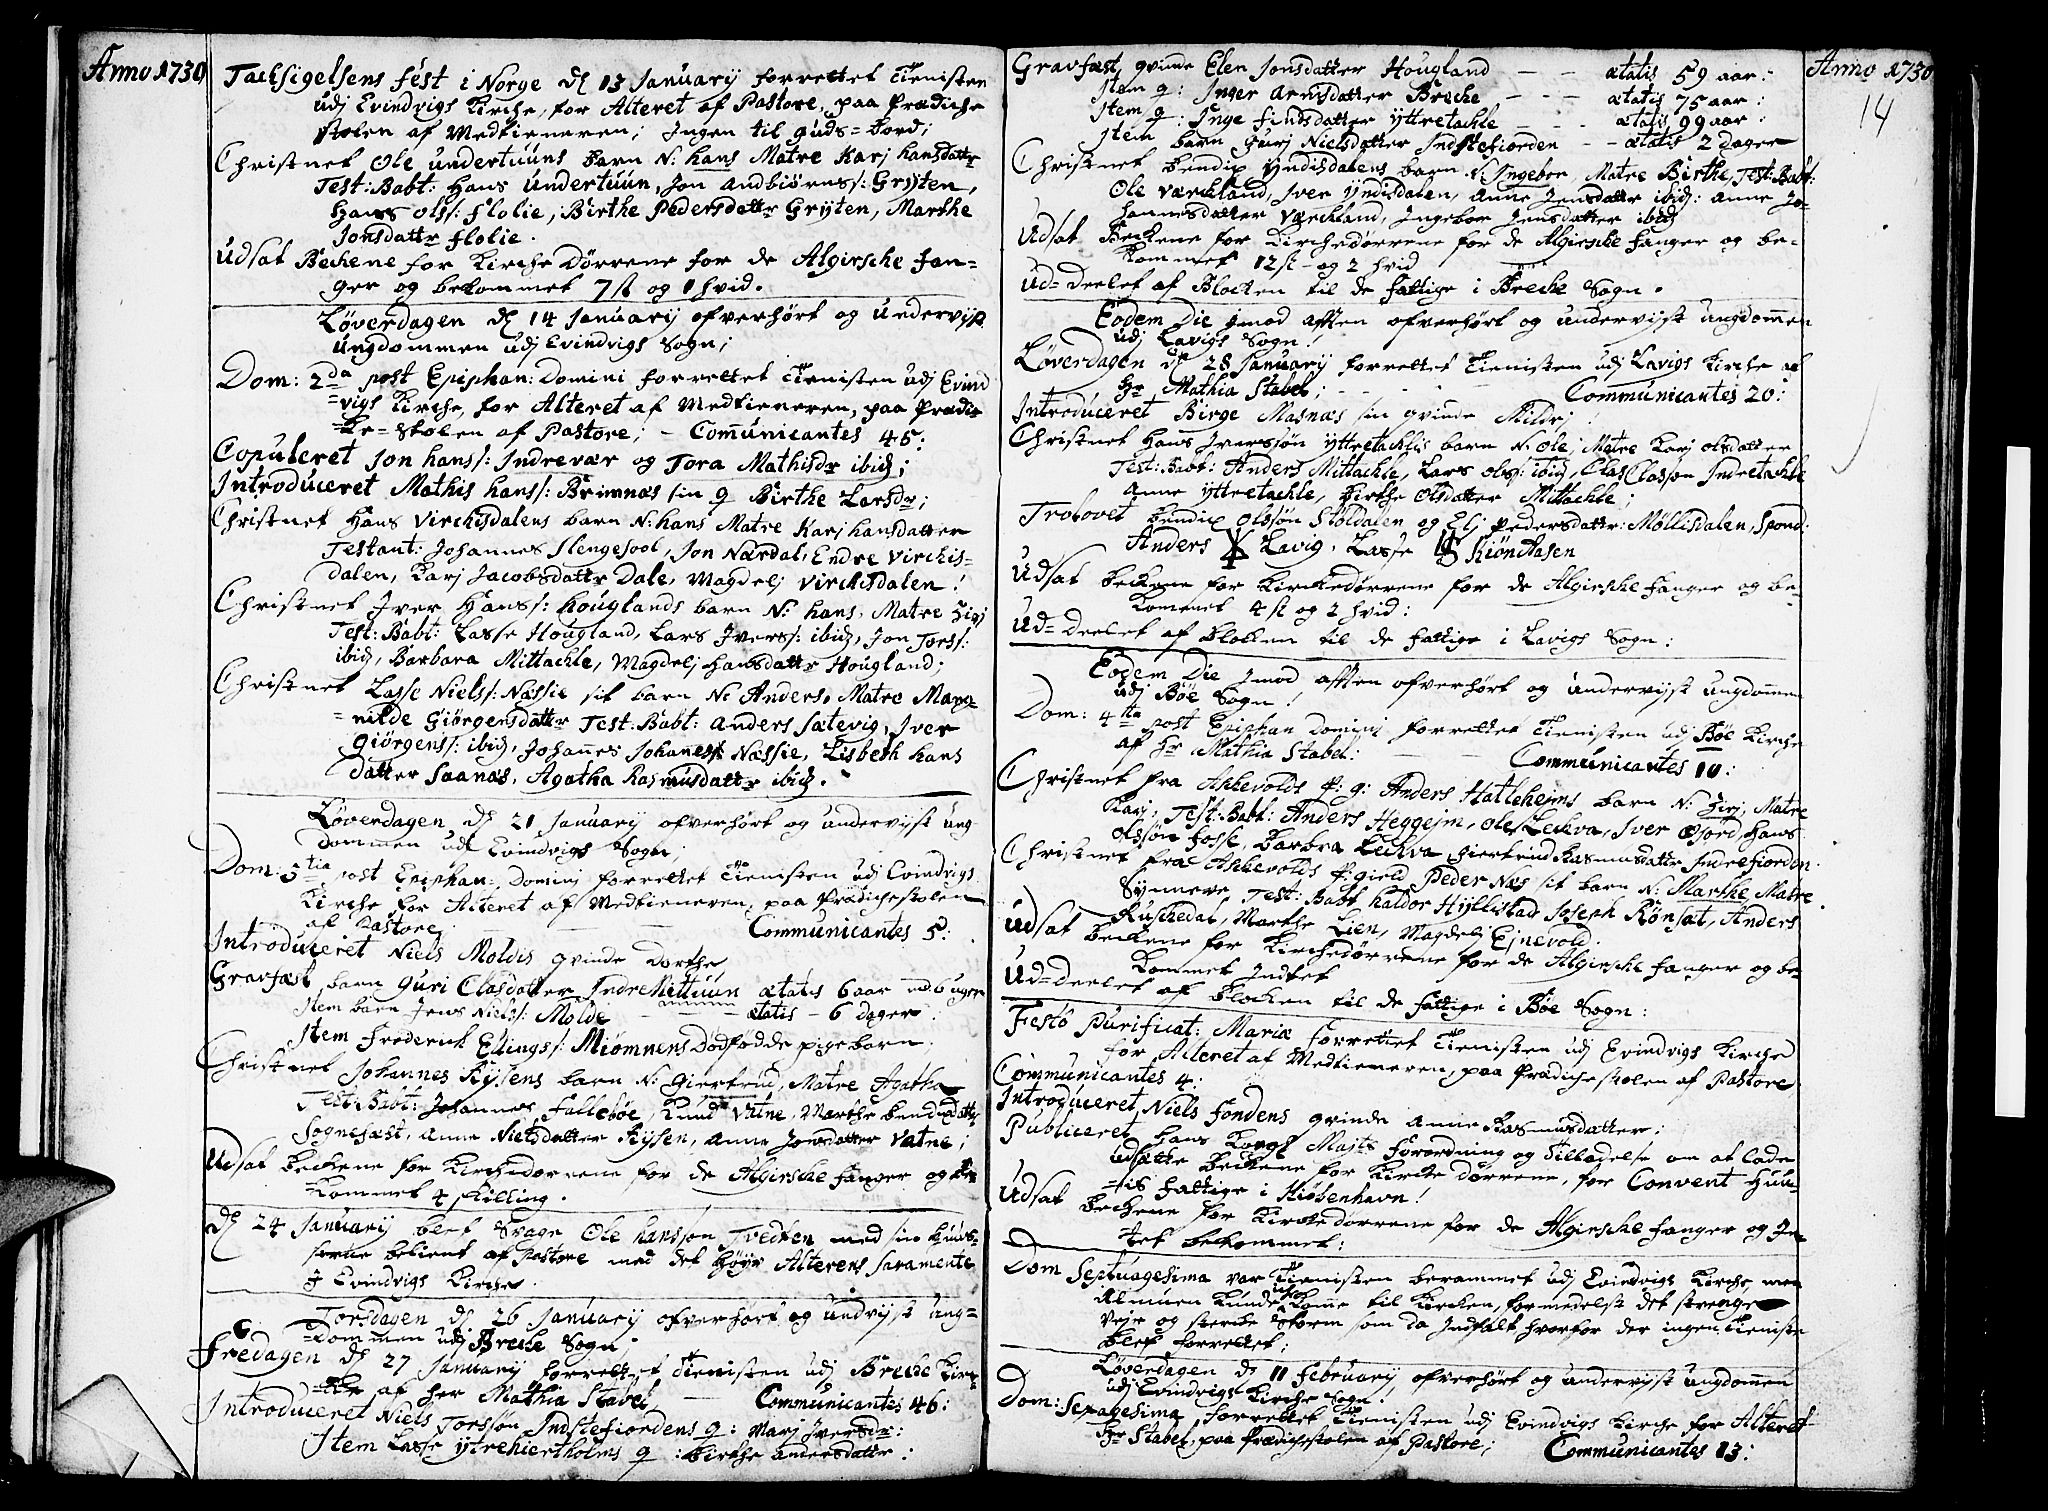 Anno 1730
Tachsigelsens fest i Norge dj 13 January forrettet Tienisten
udj Evindvigs Kirche, for Alteret af Pastore, paa Prædiche
stolen af Medtieneren; Ingen til Guds=bord;
Christnet Ole Undertuuns barn N: hans Matre Karj hansdattr
Test: Babt: Hans Undertuun, Jon Andbiørnss: Gryten,
Hans Olss: flolie, Birthe Pedersdattr Gryten, Marthe
Jonsdattr flolie.
Udsat Beckene for Kirche Dørrene for de Algirsche Fan=
ger og bekommet 7 ß og 1 hvid.
Løverdagen dj 14 January ofverhørt og undervjst
ungdommen udj Evindvigs Sogn;
Dom: 2da post Epiphan: Domini forrettet Tienisten udj Evind
=vigs Kirche, for Alteret af Medtieneren, paa Prædi
=ke=stolen af Pastore; – Communicantes 45:
Copuleret Jon hanss: Indrevær og Tora Mathisdr ibid;
Introduceret Mathis hanss: Brimnæs sin q Birthe Larsdr;
Christnet Hans Virchisdalens barn N: hans Matre Karj hansdatter
Testant: Johannes Slengesool, Jon Nærdal, Endre Virchis=
dalen, Karj Jacobsdattr Dale, Magdelj Virchisdalen!
Christnet Iver Hanss: houglands barn N: hans, Matre Sirj
Test: Babt: Lasse Hougland, Lars Iverss: ibid, Jon Torss:
ibid, Barbara Mittachle, Magdelj Hansdattr Hougland;
Christnet Lasse Nielss: Næssie sit barn N: Anders, Matre Mag=
=nilde Giørgensdatter Test: Babt: Anders Sætevig, Iver
Giørgenss: ibid, Johannes Johaness: Næssie, Lisbeth hans
datter Saanæs, Agatha Rasmusdattr ibid.
Løverdagen dj 21 January ofverhørt og undervjst ung
dommen udj Evindvigs Sogn;
Dom: 3tia post Epiphan: Dominj forrettet Tienisten udj Evindvigs
Kirche for Alteret af Medtieneren, paa Prædichestolen
af Pastore, – – – Communicantes 5:
Introduceret Niels Moldis qvinde Dorthe
Gravfæst barn Guri Clasdatter Indre Mittuun ætatis 6 aar 6 uger
Item barn Jens Nielss: Molde – ætatis – 6 dager
Item Frederich Ellingss: Miømnens Dødfødde pigebarn.
Christnet Johannes Rysens barn N: Giertrud, Matre Agatha
Test: Babt: Johannes Fallebøe, Knud Vatne, Marthe bendixdattr
Sognefæst, Anne Nielsdatter Rysen, Anne Jonsdatter Vatne;
Udsat Beckene for Kirchedørrene for de Algirsche Fanger og be
=kommet 4 skilling.
dj 24 January blef Svage Ole hanssøn Tvedten med sin huus=
betient af Pastore med det Høye Alterens Saramente
J Evindvigs Kirche.
Torsdagen dj 26 January ofverhørt og undvjst ung=
=dommen udj Breche Sogn;
Fredagen dj 27 January forrettet Tienisten udj Breche Kir=
=ke af her Mathia Stabel, – Communicantes 46:
Introduceret Niels Torssøn Indstefiordens q: Marj Iversdr:
Item Lasse Ytrehiertholms q: Birthe Andersdatter:
Anno 1730
14
Gravfæst qvinde Elen Jonsdatter Hougland – – ætatis 59 aar:
Item q: Inger Arnisdatter Breche – – – ætatis 75 aar:
Item q: Inge Findsdatter Yttretachle – – ætatis 99 aar:
Item barn Gurj Nielsdatter Indstefiorden – – ætatis 2 dager
Christnet Bendix Yndisdalens barn N: Ingebor, Matre Birthe, Test: Babt:
Ole Værckland, Iver Yndisdalen, Anne Jensdatter ibid: Anne Jo=
hannesdatter Værckland, Ingebor Jensdatter ibid
Udsat Beckene for Kirchedørrene for de Algirsche Fanger og be=
kommet 12 ß – og 2 hvid
Ud=deelet af Blocken til de fattige i Breche Sogn.
Eodem Die jmod afften ofverhørt og undervjst ungdommen
udj Lavigs Sogn!
Løverdagen dj 28 January forrettet Tienisten udj Lavigs Kirche af
Hr Mathia Stabel; – – – Communicantes 20:
Introduceret Birge Masnæs sin qvinde Mildrj
Christnet Hans Iverssøn Yttretachlis barn N: Ole, Matre Karj Olsdatter
Test: Babt: Anders Mittachle, Lars Olss: ibid, Clas Classøn Indretachle
Anne Yttretachle, Birthe Olsdatter Mittachle;
Trolovet Bendix Olssøn Støldalen og Elj Pedersdatter: Møllisdalen, Spond:
Anders Lavig, Lasse Kiønaasen
Udsat Beckene for Kirchedørrene for de Algirsche Fanger og be=
kommet 4 ß og 2 hvid:
Ud=deelet af Blocken til de fattige i Lavigs Sogn:
Eodem Die Imod afften ofverhørt og undervjst ungdommen
udj Bøe Sogn!
Dom: 4ta post Epiphan Domini forrettet Tienisten udj Bøe Kirche
af Hr Mathia Stabel: – – Communicantes 10:
Christnet fra Askevolds P: g: Anders Hatlehejms barn N: Sirj, Matre
Karj, Test: Babt: Anders Heggejm, Ole Leckva, Iver Osjord, Hans
Olssøn Josse, Barbra Leckva, Giertrud Rasmusdattr Indrefiorden.
Christnet fra Askevolds P: gield Peder Næs sit barn N: Marthe, Matre
Synneve, Test: Babt haldor Hyllistad Joseph Rønsæt, Anders
Ruschedal, Marthe Lien, Magdelj Ejnevold.
Udsat Beckene for Kirchedørrene for de Algirsche Fanger og be=
kommet Indtet
Ud=deelet af Blocken til de fattige i Bøe Sogn:
Festo Purificat: Mariæ forrettet Tienisten udj Evindvigs Kirche
for Alteret af Medtieneren, paa Prædichestolen af Pastore
Communicantes 4:
Introduceret Niels Fondens qvinde Anne Rasmusdatter;
Publiceret Hans Kongl Majts Forordning og Tilladelse om at lade
udsætte Beckene for Kirke dørrene, for Convent Huu=
=sis fattige i Kiøbenhavn!
Udsat Beckene for Kirckedørrene for de Algirsche Fanger og In=
tet bekommet:
Dom Septuagesima var Tienisten berammet udj Evindvigs Kirche, men
Almuen kunde icke komme til Kircken, formedelst det strenge
Veje og sterke Storm som da Indfalt hvorfor der ingen Tieniste
blef forrettet;
Løverdagen dj 11 February ofverhørt og undervjst ungdommen
udj Evindvigs Kirche Sogn.
Dom: Sexagesima forrettet Tienisten udj Evindvigs Kirche for Alteret
Hr Stabel, paa Prædichestolen af Pastore; Communicantes 13: